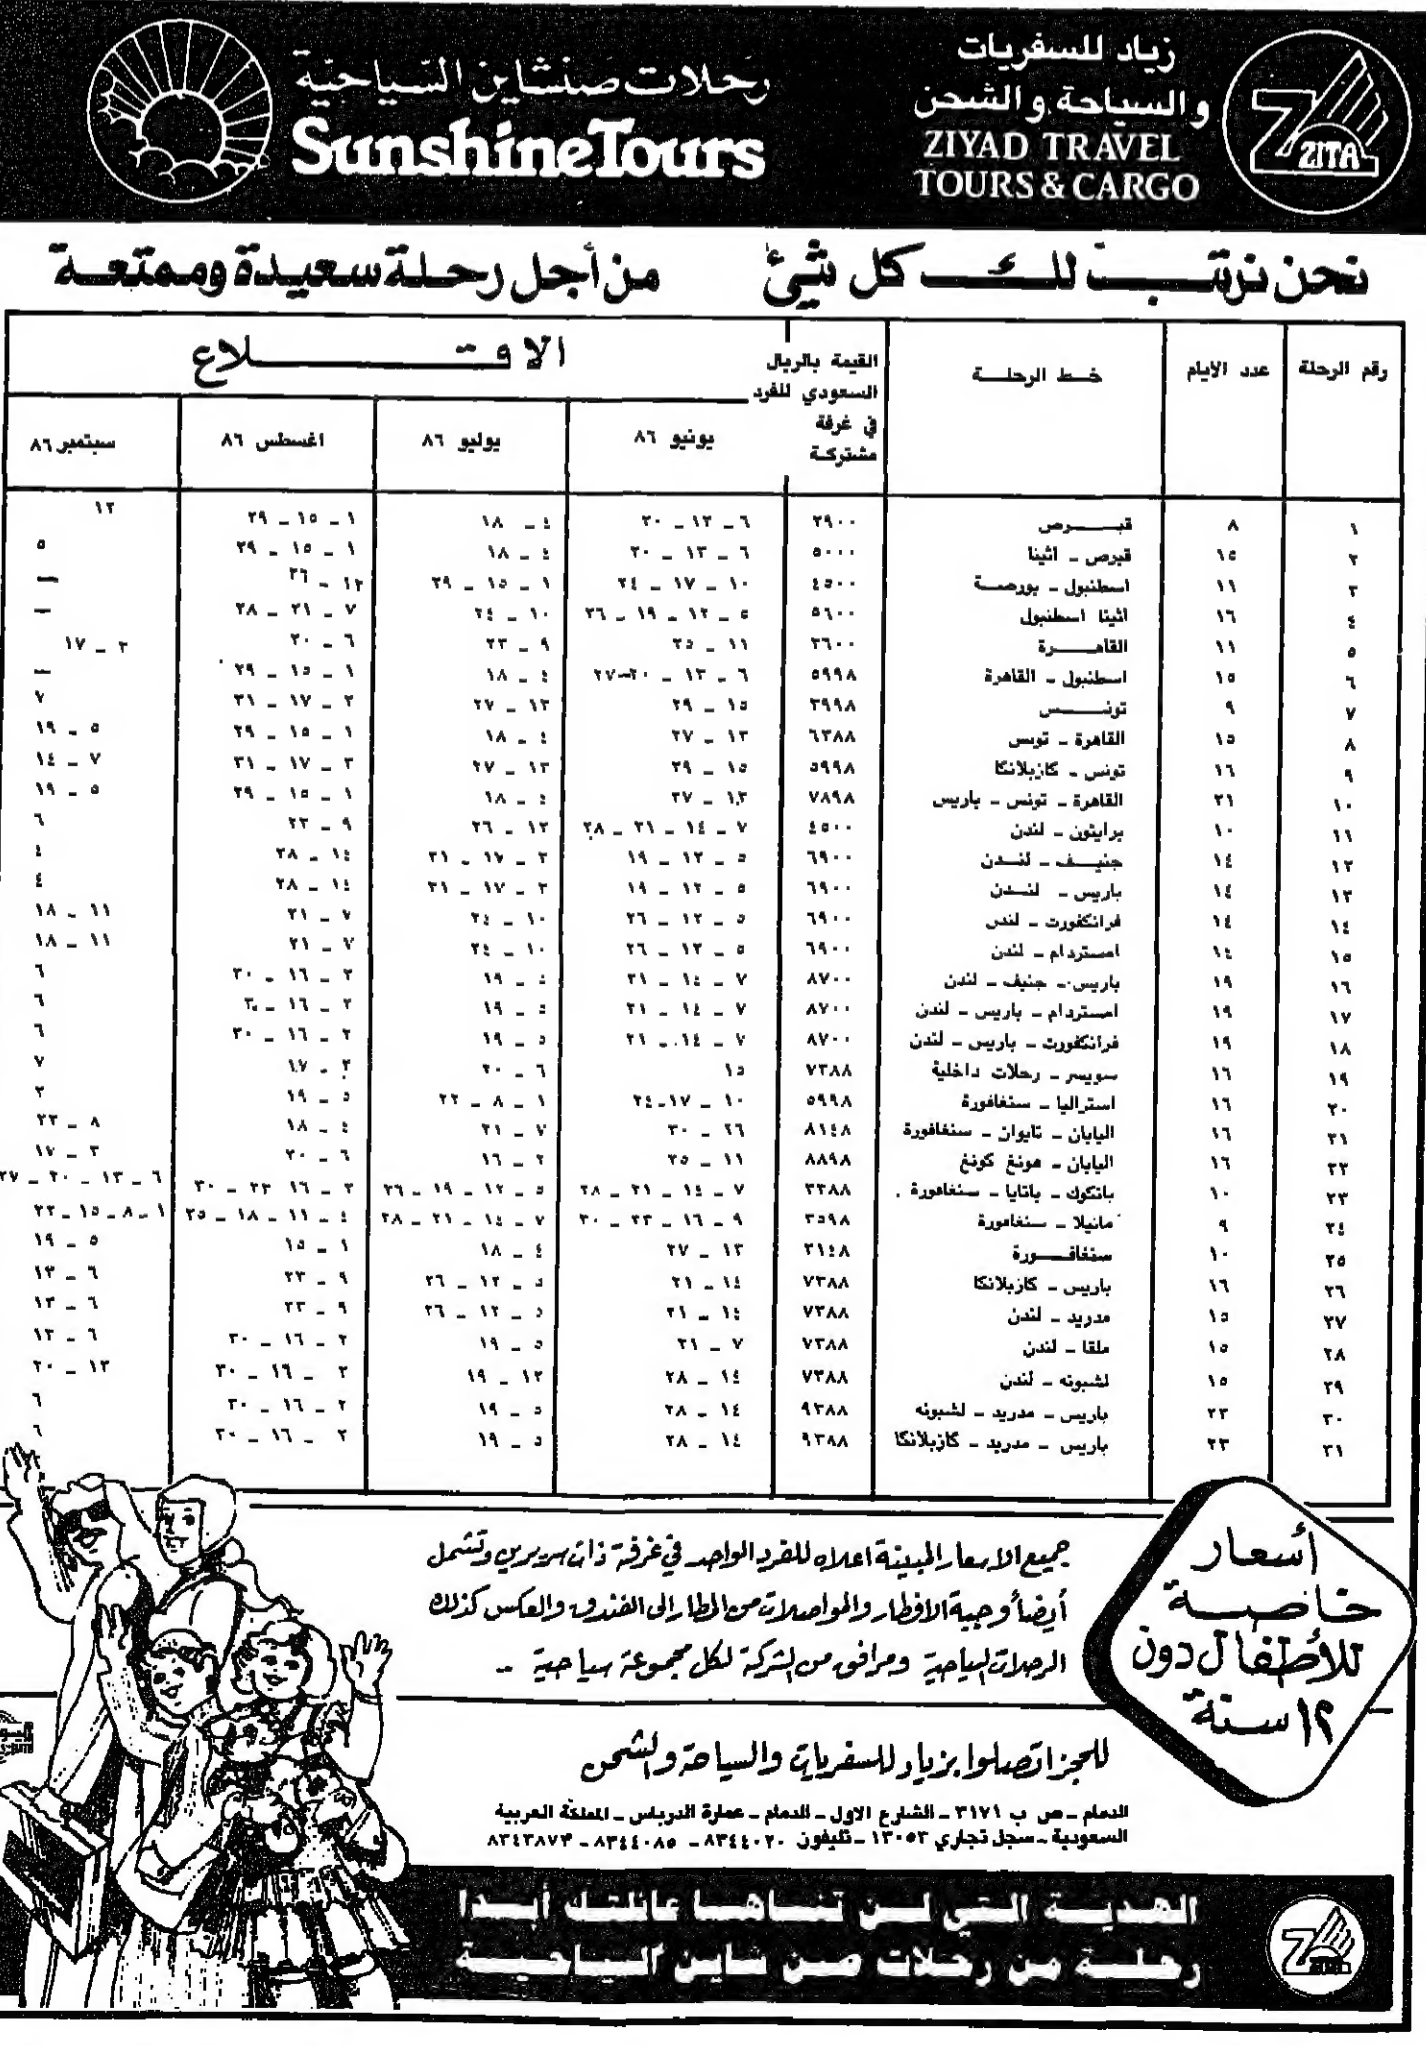 زياد للسفريات
والسياحة والشحن
ZIYAD TRAVEL
TOURS & CARGO
ZITA
رحلات صنشاين السياحية
SunshineTours
نحن نرتب لك كل شئ من أجل رحلة سعيدة وممتعة
رقم الرحلة عدد الايام خط الرحلة القيمة بالريال السعودي للفرد في غرفة مشتركة الاقلاع
يونيو ٨٦ يوليو ٨٦ اغسطس ٨٦ سبتمبر ٨٦
١ ٨ قبرص ٢٩٠٠ ٦ - ١٣ - ٢٠ ٤ - ١٨ ١ - ١٥ - ٢٩ ١٢
٢ ١٥ قبرص - اثينا ٥٠٠٠ ٦ - ١٣ - ٢٠ ٤ - ١٨ ١ - ١٥ - ٢٩ ٥
٣ ١١ اسطنبول - بورصة ٤٥٠٠ ١٠ - ١٧ - ٢٤ ١ - ١٥ - ٢٩ ١٢ - ٢٦ —
٤ ١٦ اثينا اسطنبول ٥٦٠٠ ٥ - ١٢ - ١٩ - ٢٦ ١٠ - ٢٤ ٧ - ٢١ - ٢٨ —
٥ ١١ القاهرة ٣٦٠٠ ١١ - ٢٥ ٩ - ٢٣ ٦ - ٢٠ ٣ - ١٧
٦ ١٥ اسطنبول - القاهرة ٥٩٩٨ ٦ - ١٣ - ٢٠-٢٧ ٤ - ١٨ ١ - ١٥ - ٢٩ —
٧ ٩ تونس ٣٩٩٨ ١٥ - ٢٩ ١٣ - ٢٧ ٣ - ١٧ - ٣١ ٧
٨ ١٥ القاهرة - تونس ٦٣٨٨ ١٣ - ٢٧ ٤ - ١٨ ١ - ١٥ - ٢٩ ٥ - ١٩
٩ ١٦ تونس - كازبلانكا ٥٩٩٨ ١٥ - ٢٩ ١٣ - ٢٧ ٣ - ١٧ - ٣١ ٧ - ١٤
١٠ ٢١ القاهرة - تونس - باريس ٧٨٩٨ ١٣ - ٢٧ ٤ - ١٨ ١ - ١٥ - ٢٩ ٥ - ١٩
١١ ١٠ برايتون - لندن ٤٥٠٠ ٧ - ١٤ - ٢١ - ٢٨ ١٢ - ٢٦ ٩ - ٢٣ ٦
١٢ ١٤ جنيف - لندن ٦٩٠٠ ٥ - ١٢ - ١٩ ٣ - ١٧ - ٣١ ١٤ - ٢٨ ٤
١٣ ١٤ باريس - لندن ٦٩٠٠ ٥ - ١٢ - ١٩ ٣ - ١٧ - ٣١ ١٤ - ٢٨ ٤
١٤ ١٤ فرانكفورت - لندن ٦٩٠٠ ٥ - ١٢ - ٢٦ ١٠ - ٢٤ ٧ - ٢١ ١١ - ١٨
١٥ ١٤ امستردام - لندن ٦٩٠٠ ٥ - ١٢ - ٢٦ ١٠ - ٢٤ ٧ - ٢١ ١١ - ١٨
١٦ ١٩ باريس - جنيف - لندن ٨٧٠٠ ٧ - ١٤ - ٢١ ٥ - ١٩ ٢ - ١٦ - ٣٠ ٦
١٧ ١٩ امستردام - باريس - لندن ٨٧٠٠ ٧ - ١٤ - ٢١ ٥ - ١٩ ٢ - ١٦ - ٣٠ ٦
١٨ ١٩ فرانكفورت - باريس - لندن ٨٧٠٠ ٧ - ١٤ - ٢١ ٥ - ١٩ ٢ - ١٦ - ٣٠ ٦
١٩ ١٦ سويسر - رحلات داخلية ٧٣٨٨ ١٥ ٦ - ٢٠ ٣ - ١٧ ٧
٢٠ ١٦ استراليا - سنغافورة ٥٩٩٨ ١٠ - ١٧-٢٤ ١ - ٨ - ٢٢ ٥ - ١٩ ٢
٢١ ١٦ اليابان - تايوان - سنغافورة ٨١٤٨ ٢٦ - ٣٠ ٧ - ٢١ ٤ - ١٨ ٨ - ٢٢
٢٢ ١٦ اليابان - هونغ كونغ ٨٨٩٨ ١١ - ٢٥ ٢ - ١٦ ٦ - ٢٠ ٣ - ١٧
٢٣ ١٠ بانكوك - باتايا - سنغافورة ٣٣٨٨ ٧ - ١٤ - ٢١ - ٢٨ ٥ - ١٢ - ١٩ - ٢٦ ٢ - ١٦ ٢٣ - ٣٠ ٦ - ١٣ - ٢٠ - ٢٧
٢٤ ٩ مانيلا - سنغافورة ٣٥٩٨ ٩ - ١٦ - ٢٣ - ٣٠ ٧ - ١٤ - ٢١ - ٢٨ ٤ - ١١ - ١٨ - ٢٥ ١ - ٨ - ١٥ - ٢٢
٢٥ ١٠ سنغافورة ٣١٤٨ ١٣ - ٢٧ ٤ - ١٨ ١ - ١٥ ٥ - ١٩
٢٦ ١٦ باريس - كازبلانكا ٧٣٨٨ ١٤ - ٢١ ٥ - ١٢ - ٢٦ ٩ - ٢٣ ٦ - ١٣
٢٧ ١٥ مدريد - لندن ٧٣٨٨ ١٤ - ٢١ ٥ - ١٢ - ٢٦ ٩ - ٢٣ ٦ - ١٣
٢٨ ١٥ ملقا - لندن ٧٣٨٨ ٧ - ٢١ ٥ - ١٩ ٢ - ١٦ - ٣٠ ٦ - ١٣
٢٩ ١٥ لشبونه - لندن ٧٣٨٨ ١٤ - ٢٨ ١٢ - ١٩ ٢ - ١٦ - ٣٠ ١٣ - ٢٠
٣٠ ٢٣ باريس - مدريد - لشبونه ٩٣٨٨ ١٤ - ٢٨ ٥ - ١٩ ٢ - ١٦ - ٣٠ ٦
٣١ ٢٣ باريس - مدريد - كازبلانكا ٩٣٨٨ ١٤ - ٢٨ ٥ - ١٩ ٢ - ١٦ - ٣٠ ٦
جميع الاسعار المبينة اعلاه للفرد الواحد في غرفة ذات سريرين وتشمل
أيضاً وجبة الافطار والمواصلات من المطار الى الفندق والعكس كذلك
الرحلات السياحية ومرافق من الشركة لكل مجموعة سياحية ..
أسعار
خاصة
للأطفال دون
١٢ سنة
للحجز اتصلوا بزياد للسفريات والسياحة والشحن
الدمام - ص ب ٣١٧١ - الشارع الاول - الدمام - عمارة الدرباس - المملكة العربية
السعودية - سجل تجاري ١٣٠٥٣ - تليفون ٨٣٤٤٠٢٠ - ٨٣٤٤٠٨٥ - ٨٣٤٣٨٧٣
الهدية التي لن تنساها عائلتك أبدا
رحلة من رحلات صن شاين السياحية